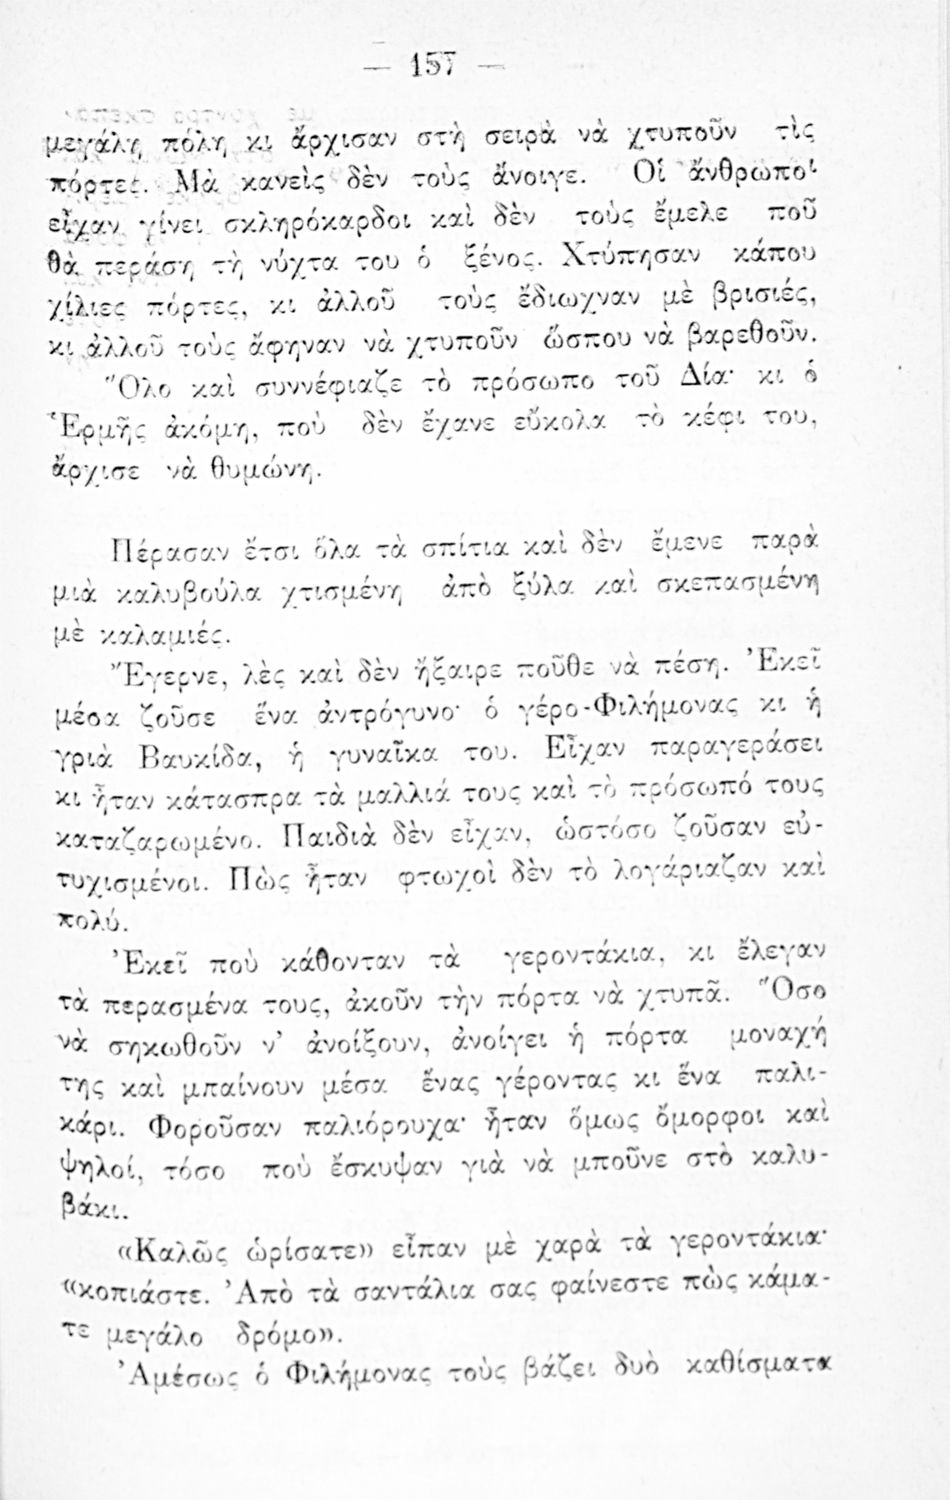 — 157 —
μεγάλη πόλη κι ἄρχισαν στὴ σειρὰ νὰ χτυποῦν τὶς
πόρτες. Μὰ κανεὶς δὲν τοὺς ἄνοιγε. Οἱ ἄνθρωποι
εἶχαν γίνει σκληρόκαρδοι καὶ δὲν τοὺς ἔμελε ποῦ
θὰ περάση τὴ νύχτα του ὁ ξένος. Χτύπησαν κάπου
χίλιες πόρτες, κι ἀλλοῦ τοὺς ἔδιωχναν μὲ βρισιές,
κι ἀλλοῦ τοὺς ἄφηναν νὰ χτυποῦν ὥσπου νὰ βαρεθοῦν.
Ὅλο καὶ συννέφιαζε τὸ πρόσωπο τοῦ Δία· κι ὁ
Ἑρμῆς ἀκόμη, ποὺ δὲν ἔχανε εὔκολα τὸ κέφι του,
ἄρχισε νὰ θυμώνη.
Πέρασαν ἔτσι ὅλα τὰ σπίτια καὶ δὲν ἔμενε παρὰ
μιὰ καλυβούλα χτισμένη ἀπὸ ξύλα καὶ σκεπασμένη
μὲ καλαμιές.
Ἔγερνε, λὲς καὶ δὲν ἤξαιρε ποῦθε νὰ πέση. Ἐκεῖ
μέσα ζοῦσε ἕνα ἀντρόγυνο· ὁ γέρο-Φιλήμονας κι ἡ
γριὰ Βαυκίδα, ἡ γυναῖκα του. Εἶχαν παραγεράσει
κι ἦταν κάτασπρα τὰ μαλλιά τους καὶ τὸ πρόσωπό τους
καταζαρωμένο. Παιδιὰ δὲν εἶχαν, ὡστόσο ζοῦσαν εὐ-
τυχισμένοι. Πὼς ἦταν φτωχοὶ δὲν τὸ λογάριαζαν καὶ
πολύ.
Ἐκεῖ ποὺ κάθονταν τὰ γεροντάκια, κι ἔλεγαν
τὰ περασμένα τους, ἀκοῦν τὴν πόρτα νὰ χτυπᾶ. Ὅσο
νὰ σηκωθοῦν ν' ἀνοίξουν, ἀνοίγει ἡ πόρτα μοναχή
της καὶ μπαίνουν μέσα ἕνας γέροντας κι ἕνα παλι-
κάρι. Φοροῦσαν παλιόρουχα· ἦταν ὅμως ὄμορφοι καὶ
ψηλοί, τόσο ποὺ ἔσκυψαν γιὰ νὰ μποῦνε στὸ καλυ-
βάκι.
«Καλῶς ὡρίσατε» εἶπαν μὲ χαρὰ τὰ γεροντάκια·
«κοπιάστε. Ἀπὸ τὰ σαντάλια σας φαίνεστε πὼς κάμα-
τε μεγάλο δρόμο».
Ἀμέσως ὁ Φιλήμονας τοὺς βάζει δυὸ καθίσματα